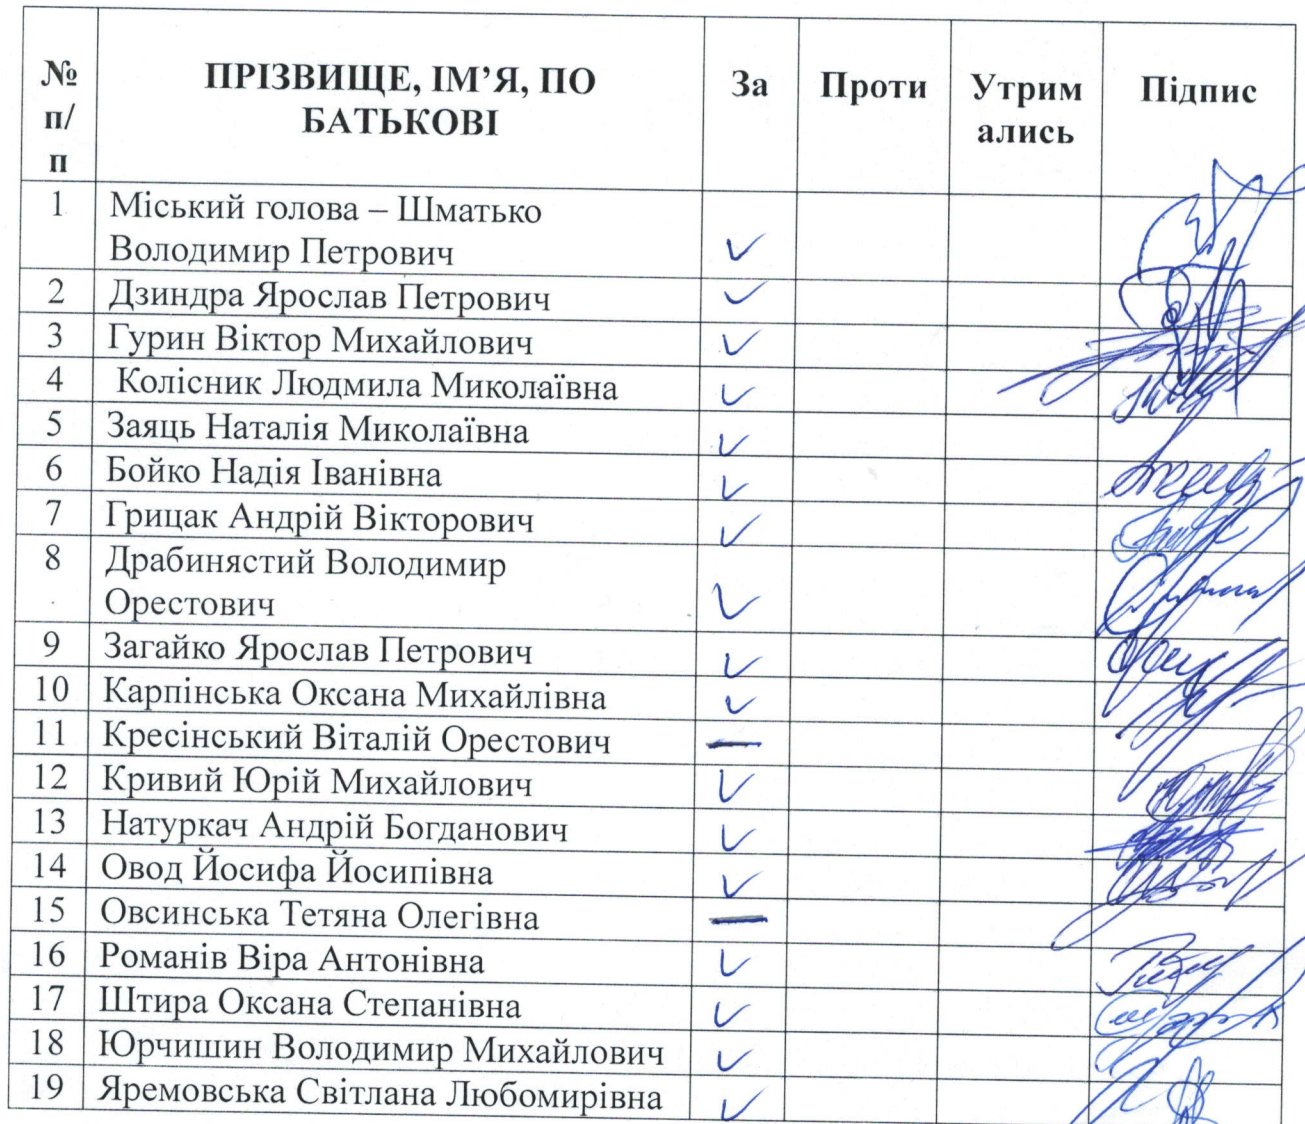 № п/п ПРІЗВИЩЕ, ІМ’Я, ПО БАТЬКОВІ За Проти Утримались Підпис
1 Міський голова – Шматько
Володимир Петрович ✓
2 Дзиндра Ярослав Петрович ✓
3 Гурин Віктор Михайлович ✓
4 Колісник Людмила Миколаївна ✓
5 Заяць Наталія Миколаївна ✓
6 Бойко Надія Іванівна ✓
7 Грицак Андрій Вікторович ✓
8 Драбинястий Володимир
Орестович ✓
9 Загайко Ярослав Петрович ✓
10 Карпінська Оксана Михайлівна ✓
11 Кресінський Віталій Орестович —
12 Кривий Юрій Михайлович ✓
13 Натуркач Андрій Богданович ✓
14 Овод Йосифа Йосипівна ✓
15 Овсинська Тетяна Олегівна —
16 Романів Віра Антонівна ✓
17 Штира Оксана Степанівна ✓
18 Юрчишин Володимир Михайлович ✓
19 Яремовська Світлана Любомирівна ✓